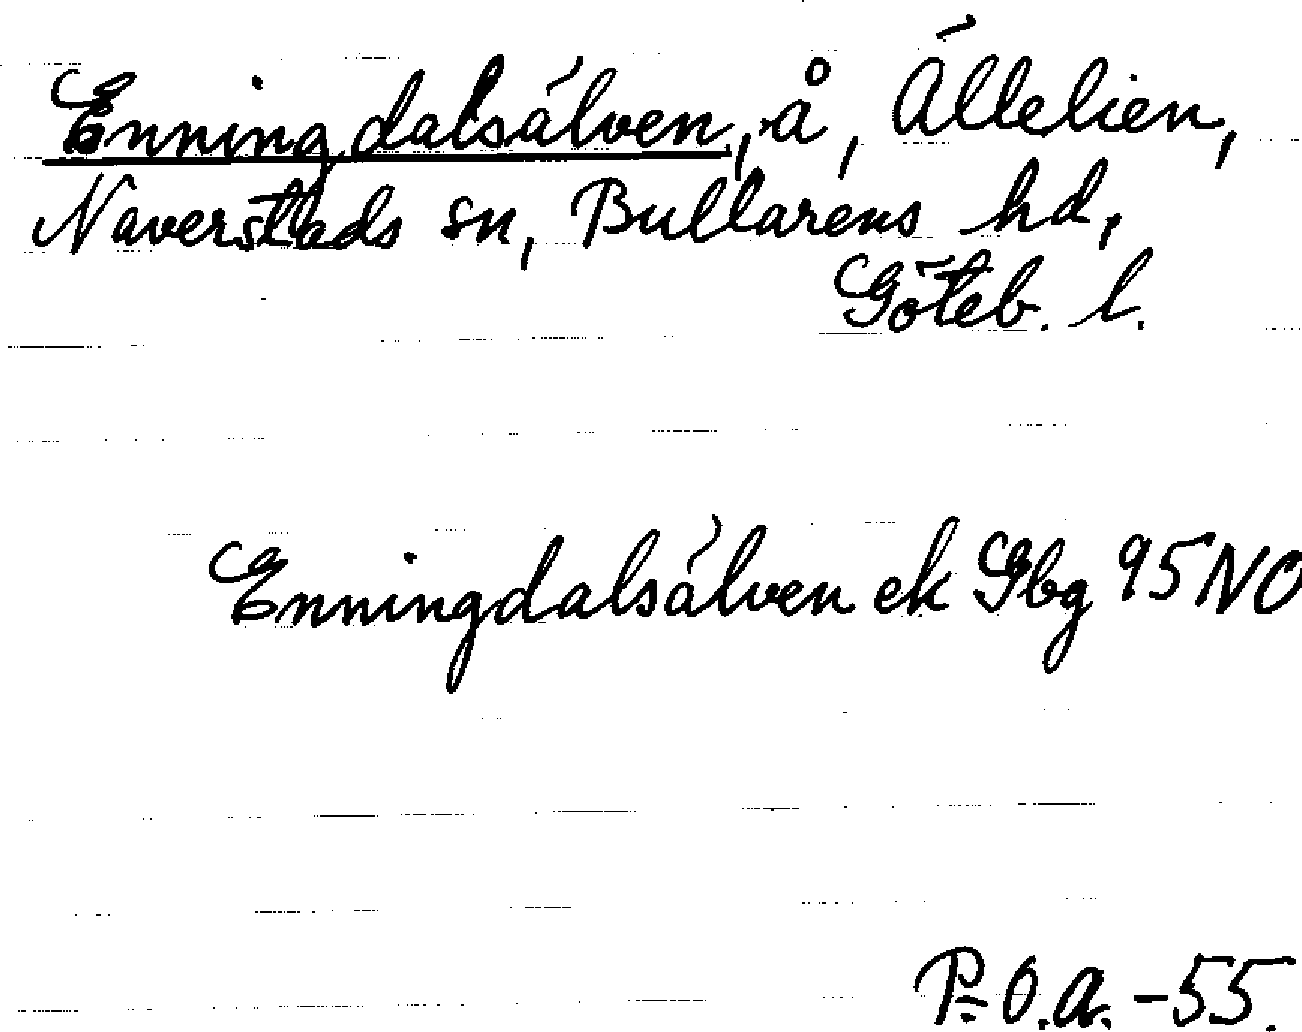 Enningdalsälven, å, Ällelien,
Naverstads sn, Bullarens hd,
Göteb. l.
Enningdalsälven ek Gbg 95 NO
P.O.A. -55.